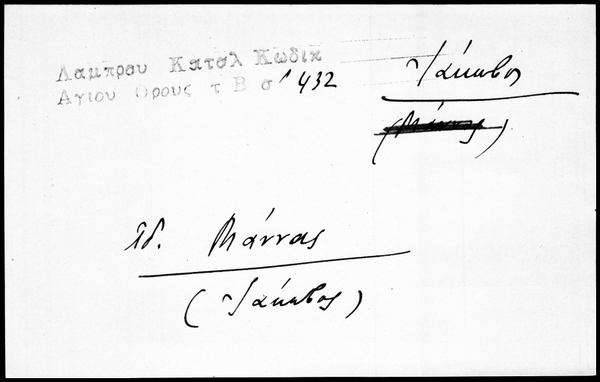 Λαμπρου Κατσλ Κωδικ
Αγιου Ορους τ Β σ 432
Ἰάκωβος
(Μάννας)
ἰδ. Μάννας
(Ἰάκωβος)